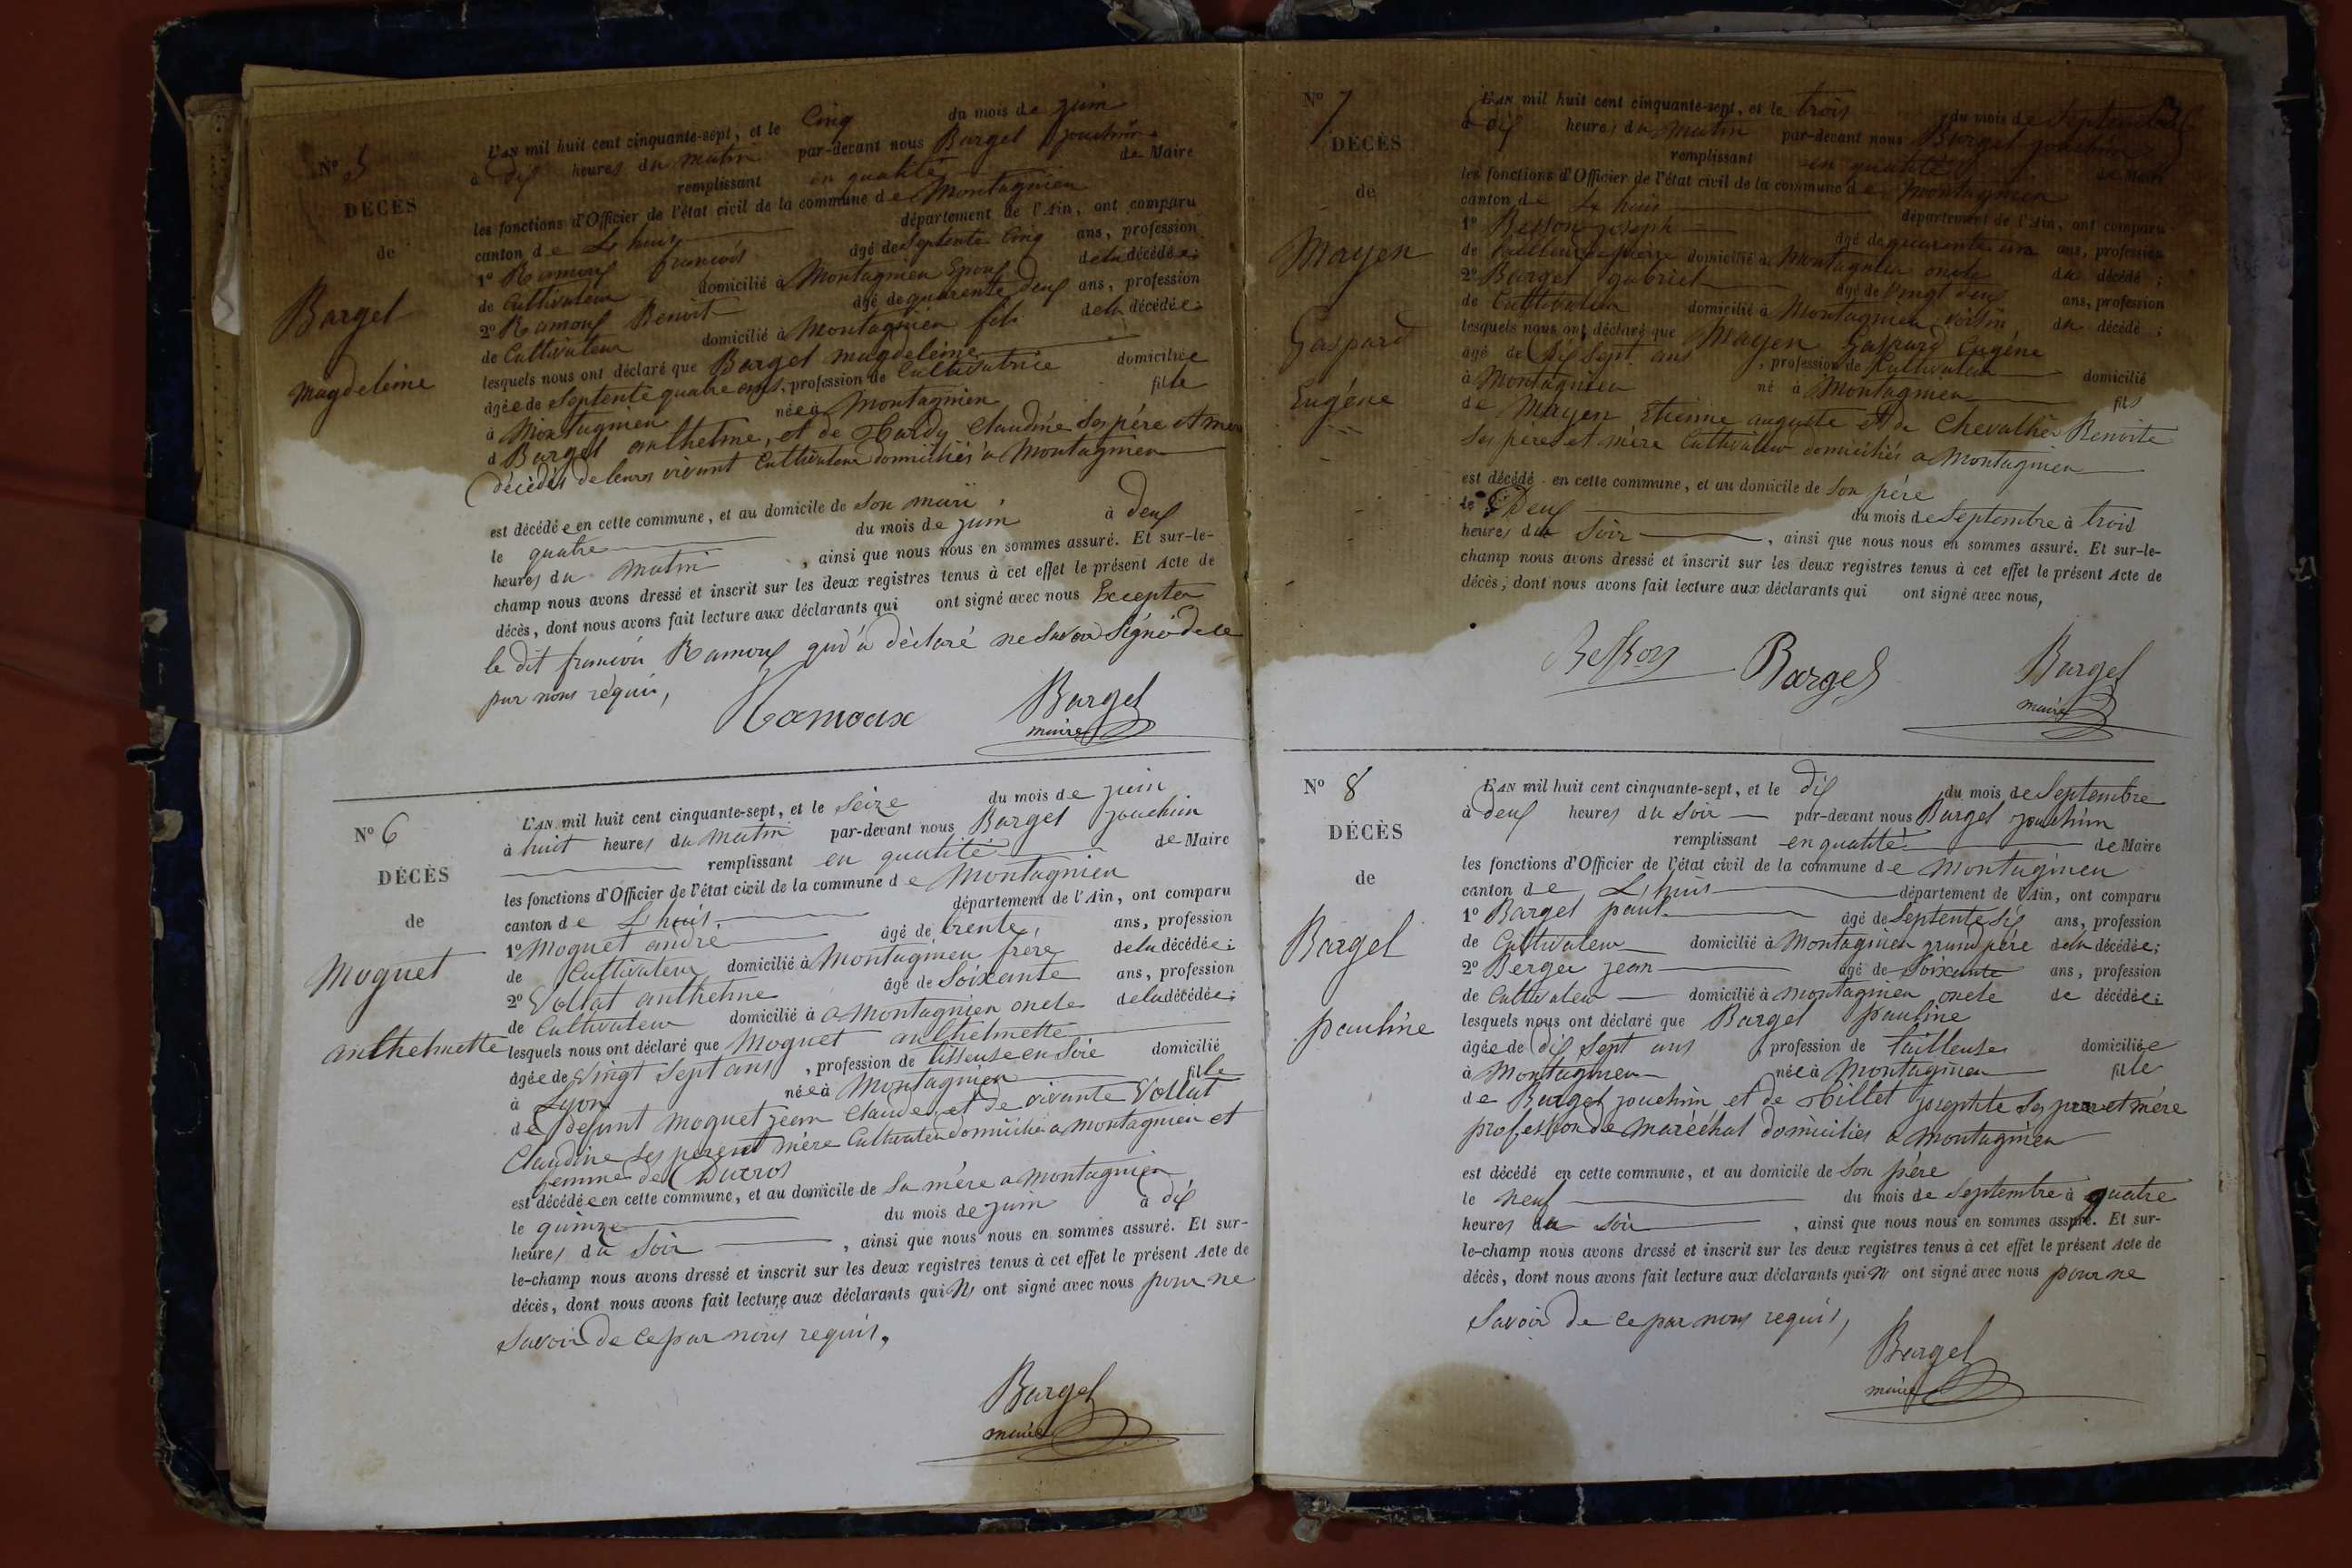 N° 5
DÉCÈS
de
Bargel
Magdeleine
L'AN mil huit cent cinquante-sept, et le Cinq du mois de juin
à dix heures du matin par-devant nous Bargel Joachim
remplissant en qualité de Maire
les fonctions d'Officier de l'état civil de la commune de Montagnieu
canton de Lhuis département de l'Ain, ont comparu
1° Ramoux françois âgé de Septente Cinq ans, profession
de Cultivateur domicilié à Montagnieu Epoux de la décédée;
2° Ramoux Benoit âgé de quarente deux ans, profession
de Cultivateur domicilié à Montagnieu fils de la décédée;
lesquels nous ont déclaré que Bargel magdeleine
âgée de Septente quatre ans, profession de Cultivatrice domiciliée
à Montagnieu née à Montagnieu fille
d Bargel anthelme, et de Hardy Claudine Ses père et mère
décédés de leurs vivant Cultivateur domiciliés à Montagnieu
est décédée en cette commune, et au domicile de Son mari,
le quatre du mois de juin à deux
heures du matin, ainsi que nous nous en sommes assuré. Et sur-le-
champ nous avons dressé et inscrit sur les deux registres tenus à cet effet le présent Acte de
décès, dont nous avons fait lecture aux déclarants qui ont signé avec nous Excepter
le dit françois Ramoux qui à déclaré ne Savoir Signé de ce
par nous réquis,
Ramoux Bargel
maire
N° 6
DÉCÈS
de
Moquet
anthelmette
L'AN mil huit cent cinquante-sept, et le Seize du mois de juin
à huit heures du matin par-devant nous Bargel Joachim
remplissant en qualité de Maire
les fonctions d'Officier de l'état civil de la commune de Montagnieu
canton de Lhuis département de l'Ain, ont comparu
1° Moquet andré âgé de trente, ans, profession
de Cultivateur domicilié à Montagnieu frère de la décédée;
2° Vollat anthelme âgé de Soixante ans, profession
de Cultivateur domicilié à a Montagnieu oncle de la décédée;
lesquels nous ont déclaré que Moquet anthelmette
âgée de Vingt Sept ans, profession de tisseuse en Soie domicilié
à Lyon née à Montagnieu fille
de défunt Moquet jean Claude, et de vivante Vollat
Claudine Ses père et mère Cultivateur domicilié a Montagnieu et
femme de Ducros
est décédée en cette commune, et au domicile de Sa mère a Montagnieu
le quinze du mois de juin à dix
heures du Soir, ainsi que nous nous en sommes assuré. Et sur-
le-champ nous avons dressé et inscrit sur les deux registres tenus à cet effet le présent Acte de
décès, dont nous avons fait lecture aux déclarants qui N ont signé avec nous pour ne
Savoir de ce par nous requis,
Bargel
maire
N° 7
DÉCÈS
de
Mayen
Gaspard
Eugéne
L'AN mil huit cent cinquante-sept, et le trois du mois de Septembre
à dix heures du matin par-devant nous Bargel joachim
remplissant en qualité de Maire
les fonctions d'Officier de l'état civil de la commune de Montagnieu
canton de Lhuis département de l'Ain, ont comparu
1° Besson joseph âgé de quarente un ans, profession
de tailleur de pierre domicilié à Montagnieu oncle du décédé;
2° Bargel gabriel âgé de Vingt deux ans, profession
de Cultivateur domicilié à Montagnieu voisin, du décédé;
lesquels nous ont déclaré que Mayen Gaspard Eugéne
âgé de Dix Sept ans, profession de Cultivateur domicilié
à Montagnieu né à Montagnieu fils
de Mayen Etienne auguste et de Chevallier Benoite
Ses père et mère Cultivateur domiciliés a Montagnieu
est décédé en cette commune, et au domicile de Son père
le Deux du mois de Septembre à trois
heures du Soir, ainsi que nous nous en sommes assuré. Et sur-le-
champ nous avons dressé et inscrit sur les deux registres tenus à cet effet le présent Acte de
décès, dont nous avons fait lecture aux déclarants qui ont signé avec nous,
Besson Bargel Bargel
maire
N° 8
DÉCÈS
de
Bargel
pauline
L'AN mil huit cent cinquante-sept, et le dix du mois de Septembre
à deux heures du Soir par-devant nous Bargel joachim
remplissant en qualité de Maire
les fonctions d'Officier de l'état civil de la commune de Montagnieu
canton de Lhuis département de l'Ain, ont comparu
1° Bargel paul âgé de Septente Six ans, profession
de Cultivateur domicilié à Montagnieu grand père de la décédée;
2° Berger jean âgé de Soixante ans, profession
de Cultivateur domicilié à Montagnieu oncle de décédée;
lesquels nous ont déclaré que Bargel pauline
âgée de dix Sept ans, profession de tailleuse domiciliée
à Montagnieu née à Montagnieu fille
de Bargel joachim et de Billet josephte Ses père et mère
profession de maréchal domiciliés a Montagnieu
est décédé en cette commune, et au domicile de Son père
le neuf du mois de Septembre à quatre
heures du Soir, ainsi que nous nous en sommes assuré. Et sur-
le-champ nous avons dressé et inscrit sur les deux registres tenus à cet effet le présent Acte de
décès, dont nous avons fait lecture aux déclarants qui N ont signé avec nous pour ne
Savoir de ce par nous requis,
Bargel
maire